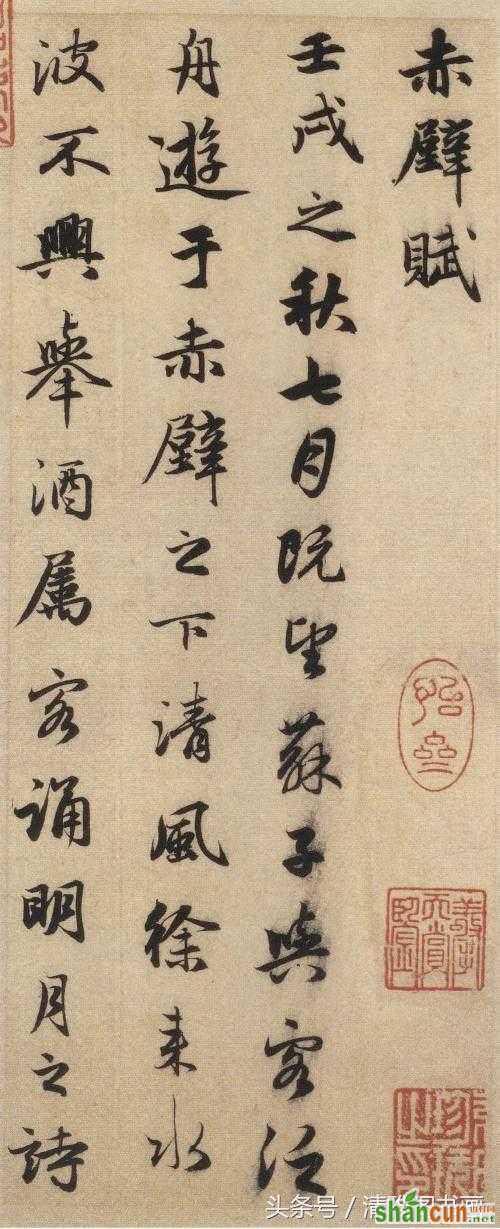 赤壁賦
壬戌之秋七月既望蘇子與客泛
舟遊于赤壁之下清風徐来水
波不興舉酒属客誦明月之詩
头条号/清
shancun
.net